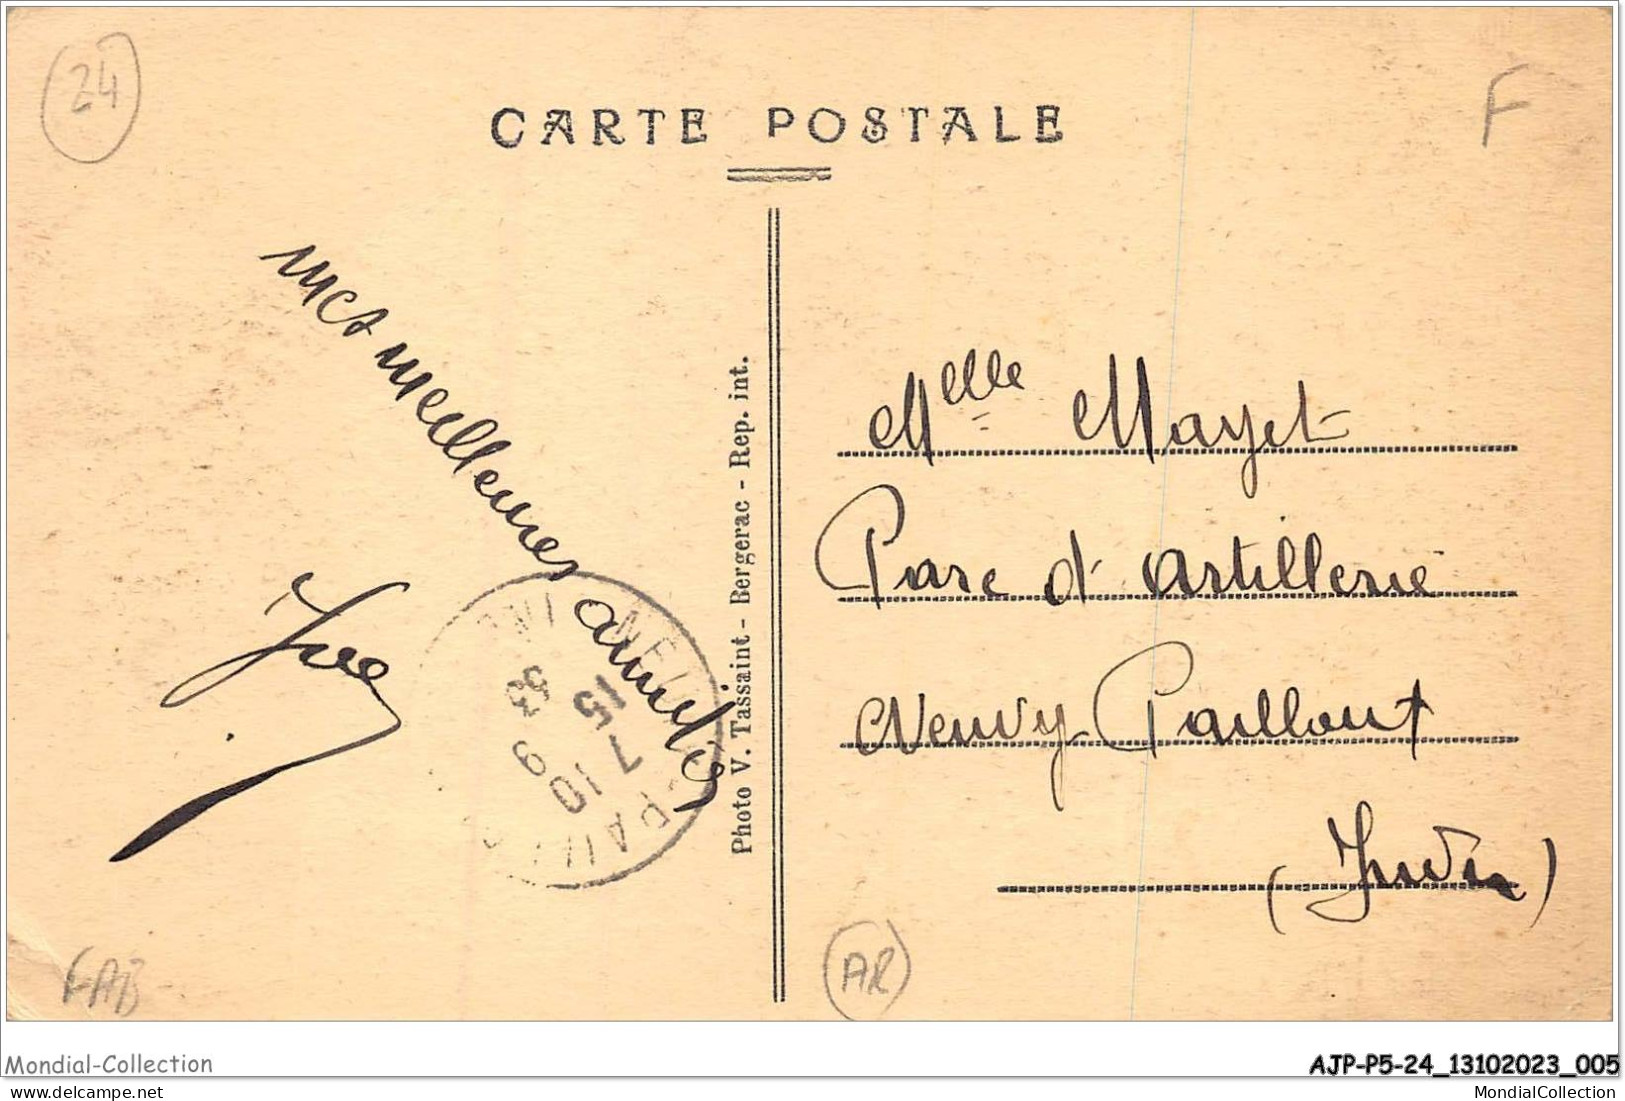 24
F
CARTE POSTALE
mes meilleures amitiés
Photo V. Tassaint - Bergerac - Rep. int.
Melle Mayet
Parc d'artillerie
Neuvy Paillout
(Indre)
15
7 10
9
33
FAB
AR
Mondial-Collection
AJP-P5-24_13102023_005
delcampe.net
MondialCollection